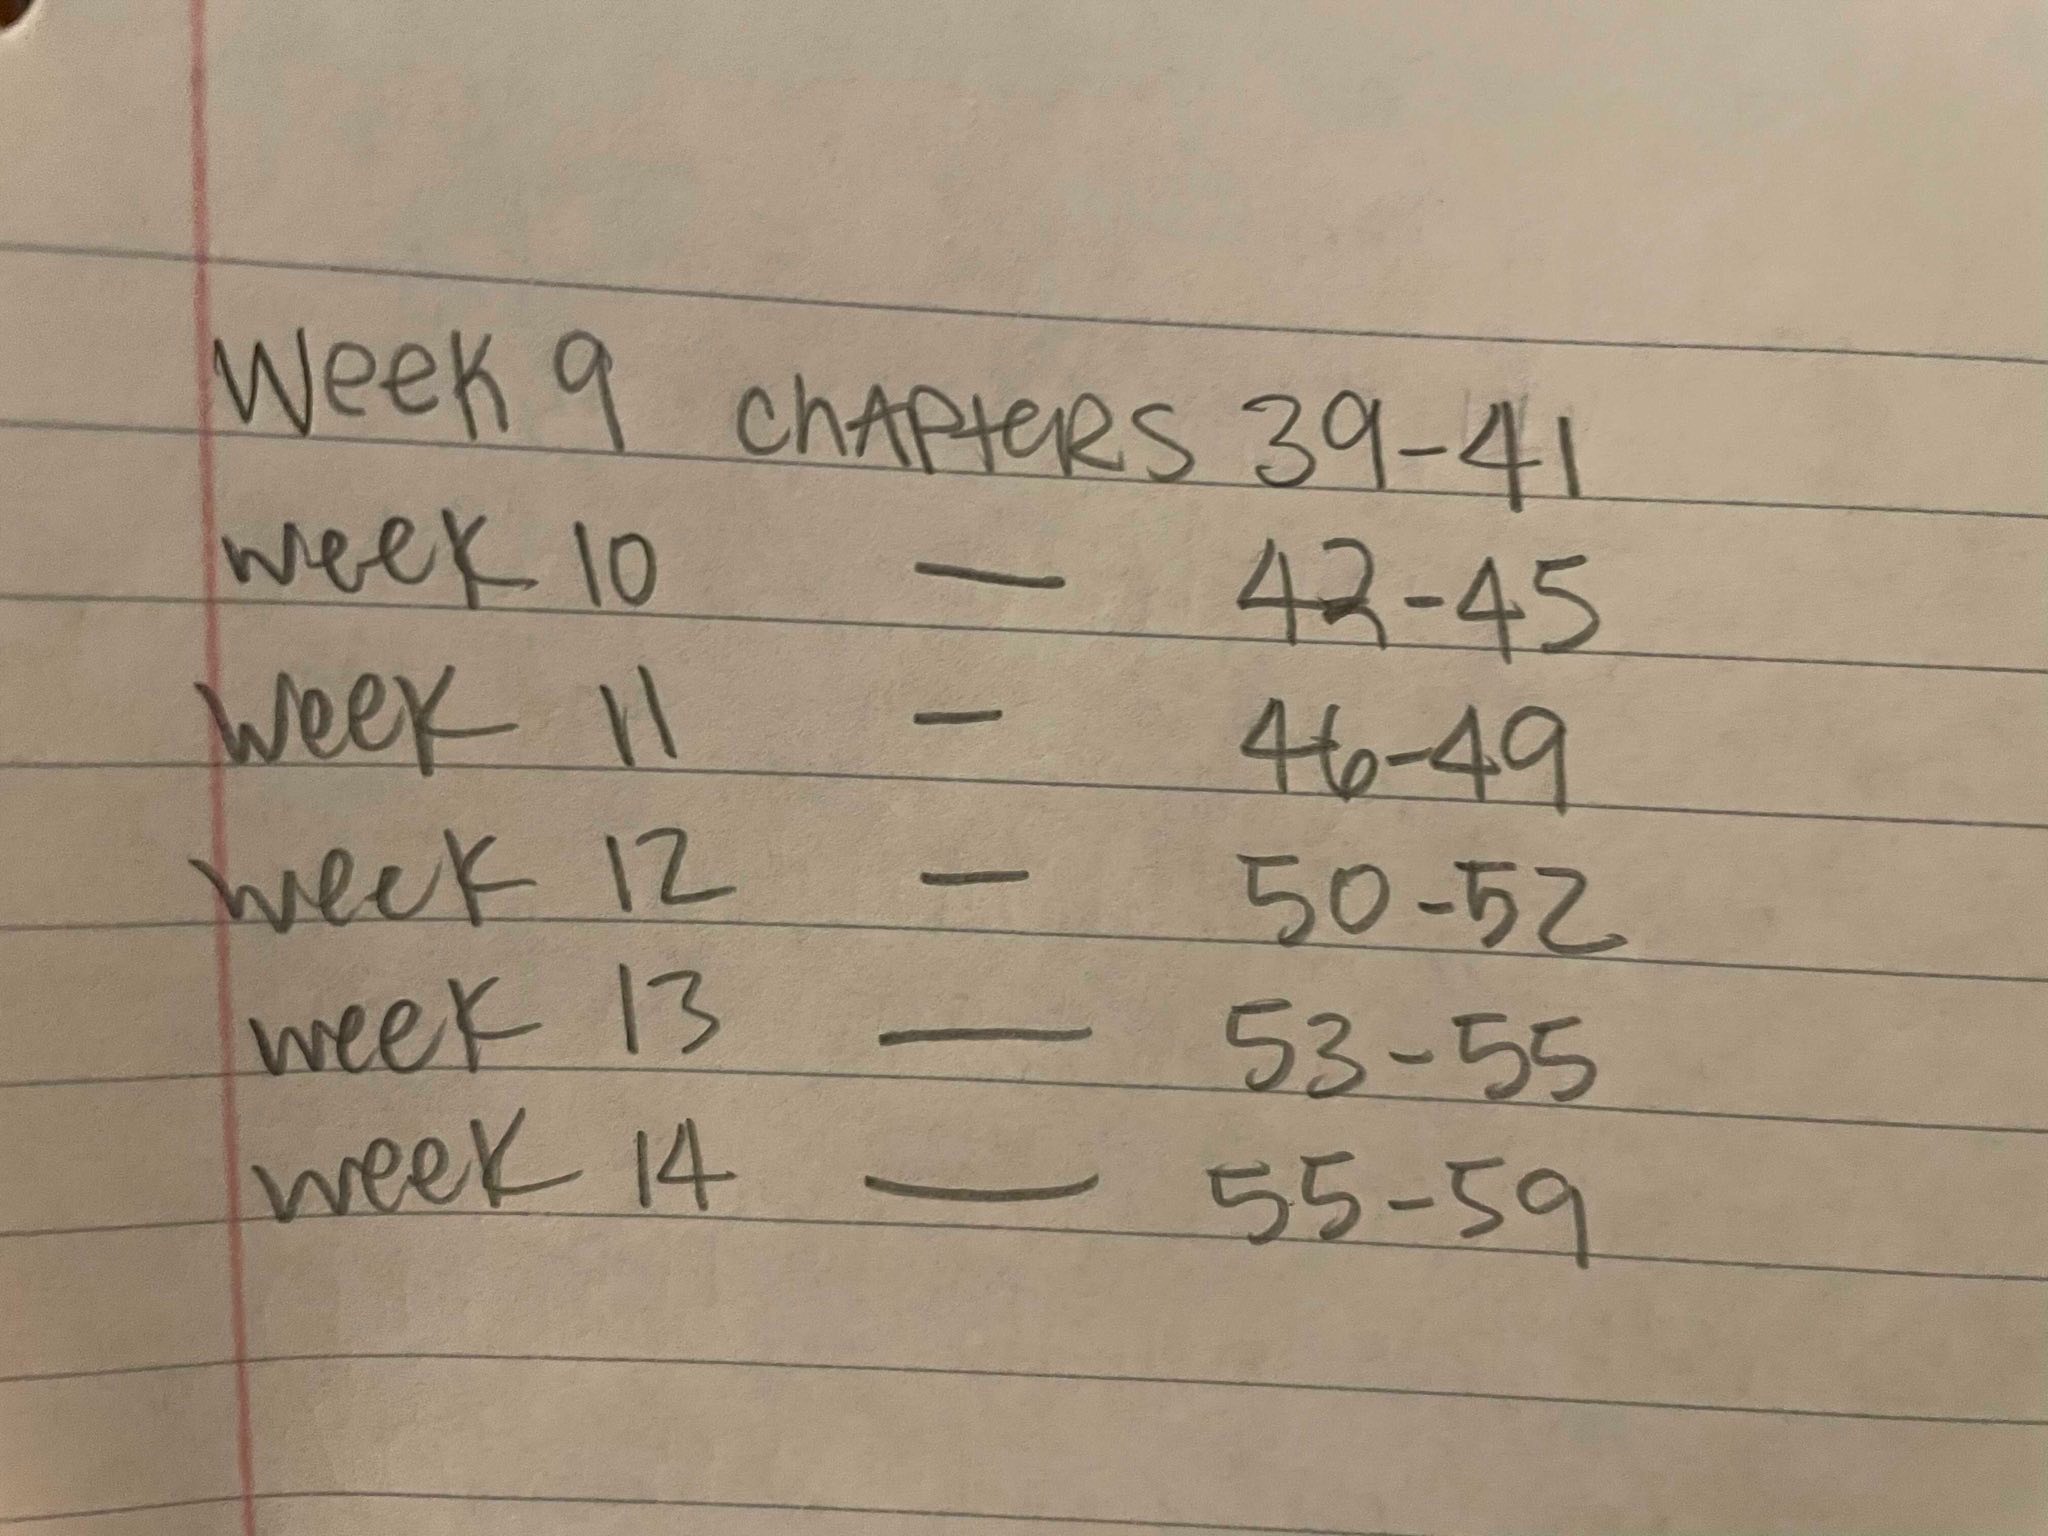 Week 9 chapters 39-41
week 10 — 42-45
week 11 — 46-49
week 12 — 50-52
week 13 — 53-55
week 14 — 55-59